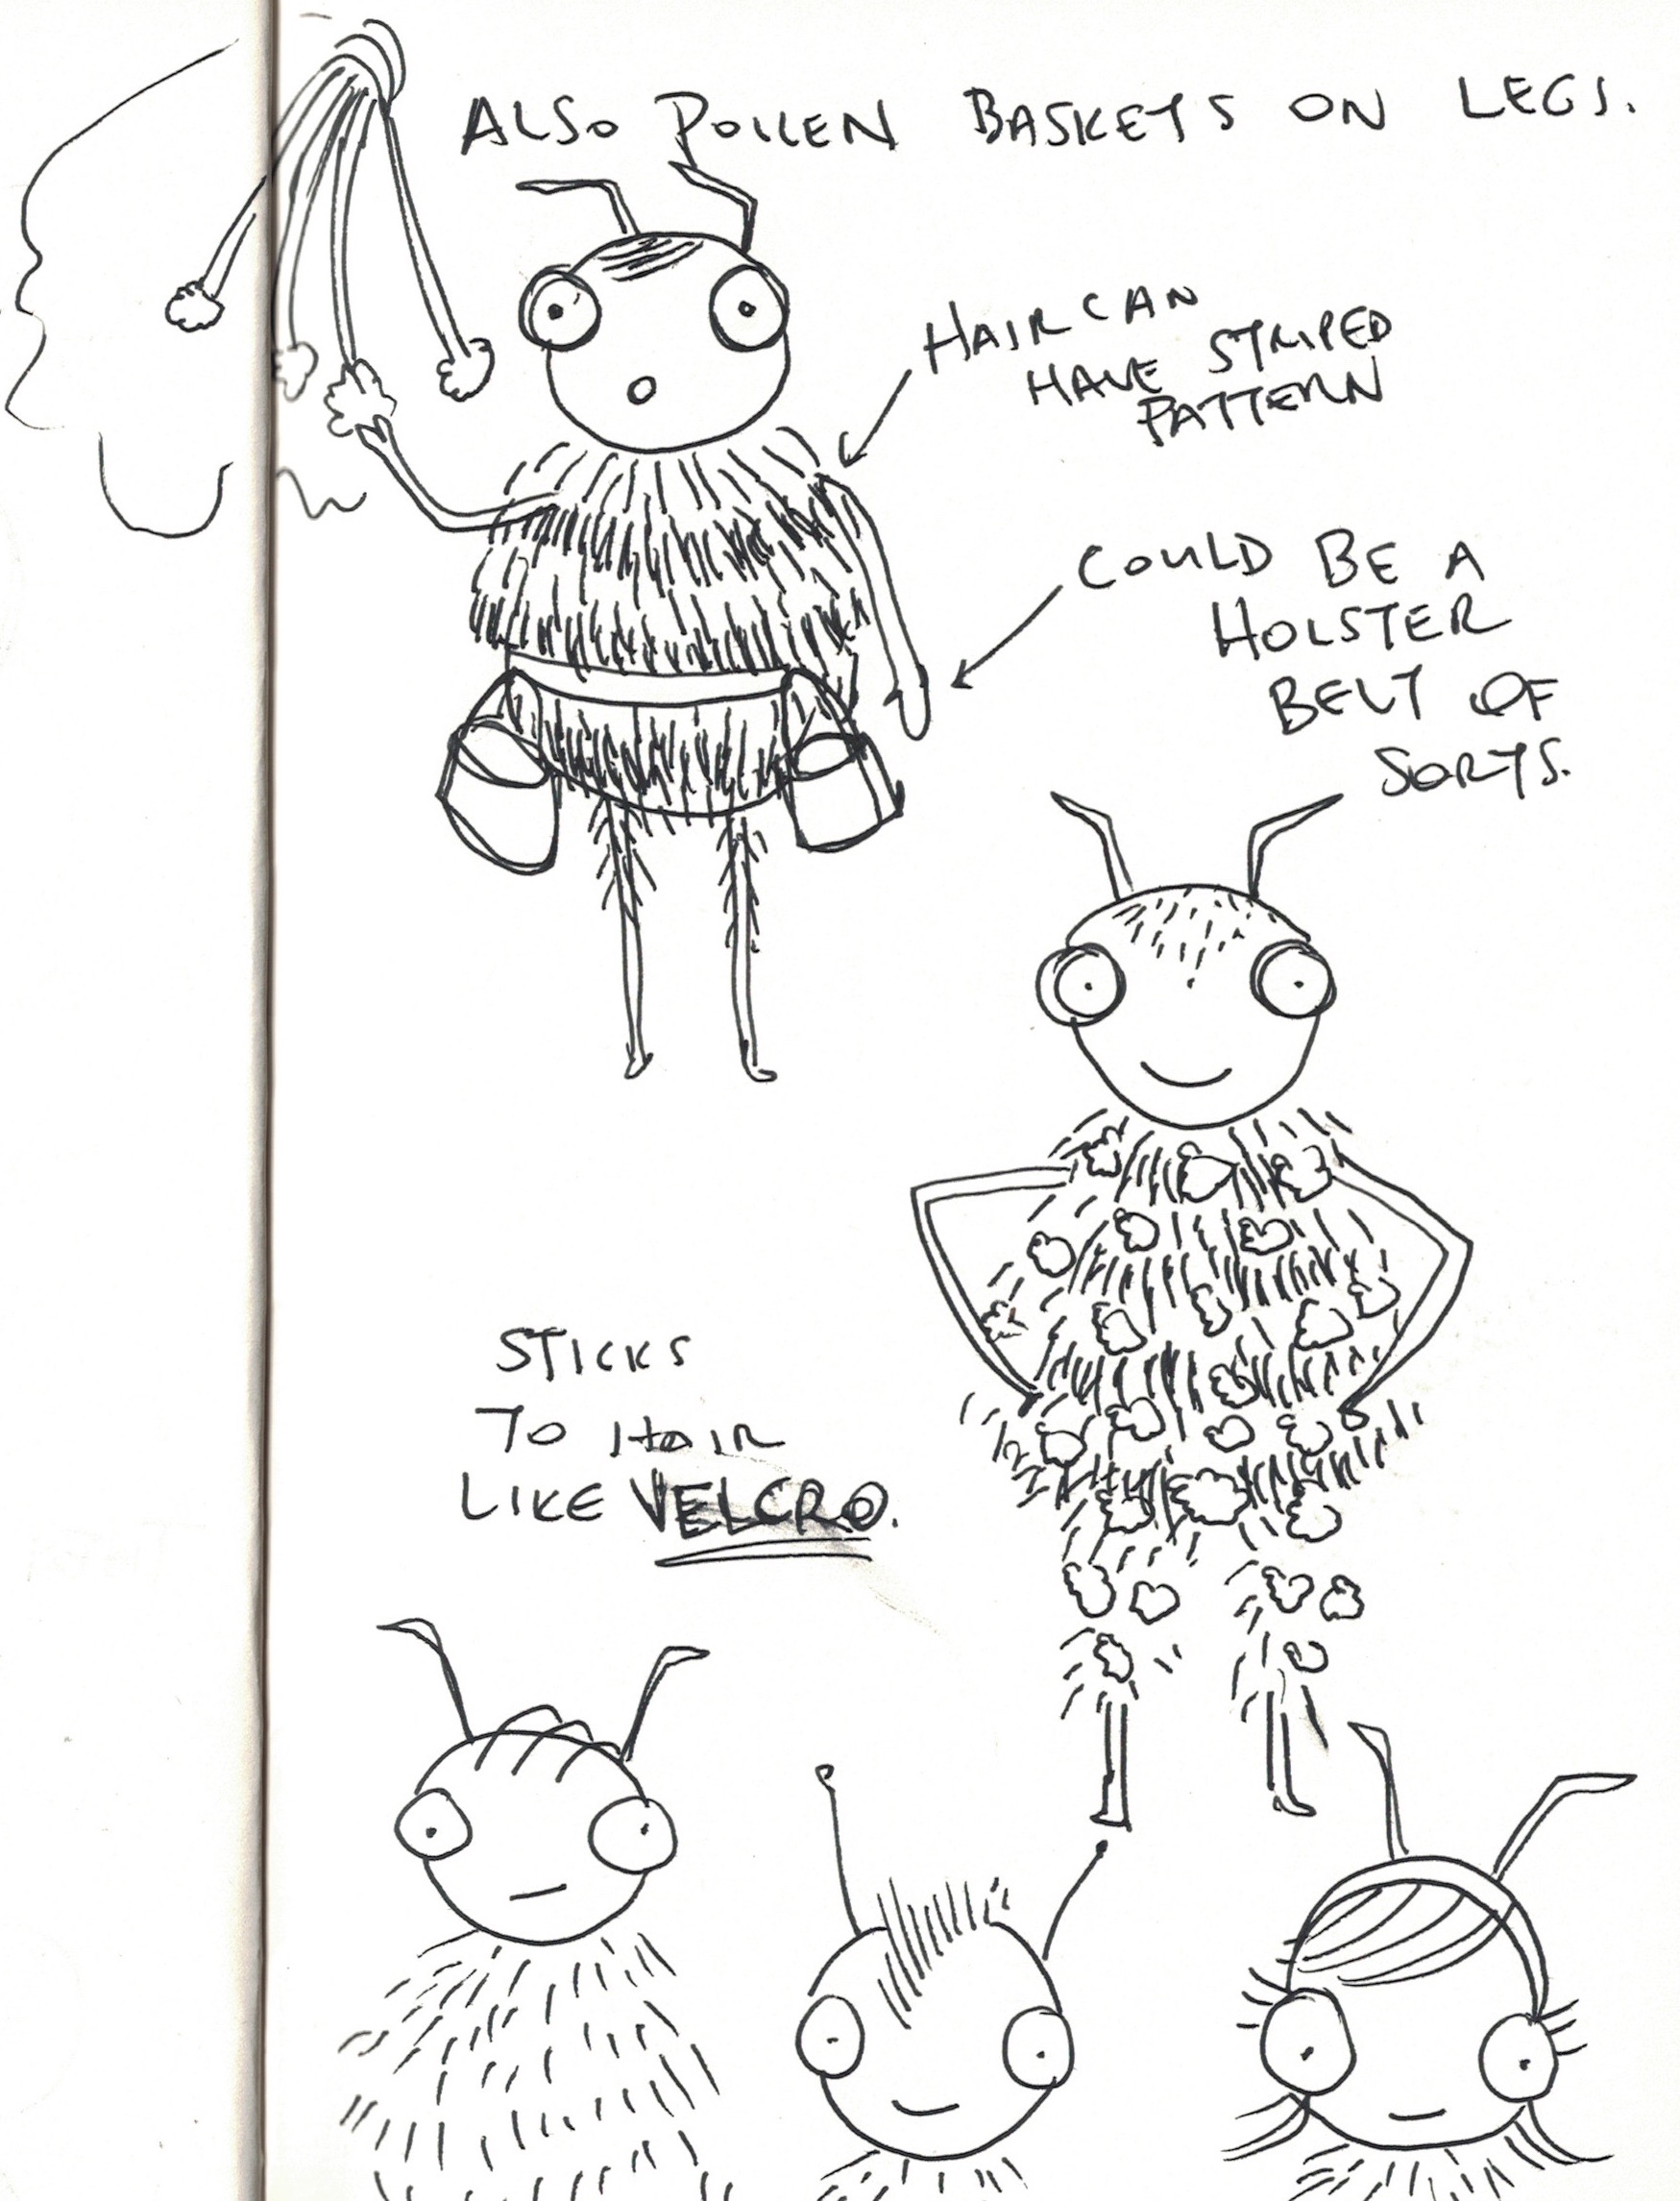 ALSO POLLEN BASKETS ON LEGS.
HAIR CAN
HAVE STRIPED
PATTERN
COULD BE A
HOLSTER
BELT OF
SORTS.
STICKS
TO HAIR
LIKE VELCRO.